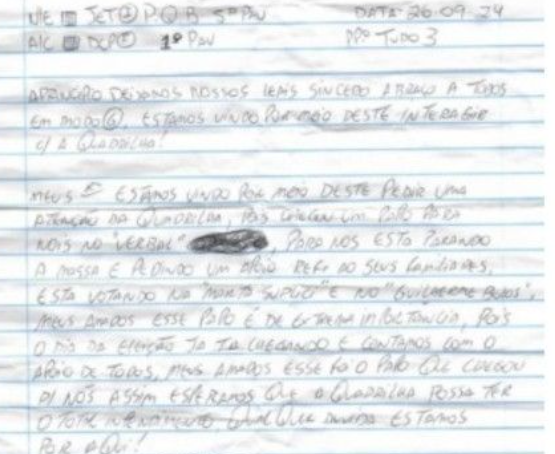 DATA 26.09.24
1º PAV
TUDO 3
DEIXAMOS NOSSOS LEAIS SINCERO ABRAÇO A TODOS
EM MODO G. ESTAMOS VINDO POR MEIO DESTE INTERAGIR
C/ A QUADRILHA!
MEUS ESTAMOS VINDO POR MEIO DESTE PEDIR UMA
ATENÇÃO DA QUADRILHA, POIS CHEGOU UM PAPO PARA
NOIS NO "VERBAL" , PARA NOS ESTA PARANDO
A MASSA E PEDINDO UM APOIO REF. AO SEUS FAMILIARES,
ESTA VOTANDO NA "MARTA SUPLICI" E NO "GUILHERME BULOS",
MEUS AMADOS ESSE PAPO É DE EXTREMA IMPORTANCIA, POIS
O DIA DA ELEIÇÃO JA TA CHEGANDO E CONTAMOS COM O
APOIO DE TODOS, MEUS AMADOS ESSE FOI O PAPO QUE CHEGOU
P/ NÓS ASSIM ESPERAMOS QUE A QUADRILHA POSSA TER
O TOTAL QUAL QUER DUVIDA ESTAMOS
POR AQUI!